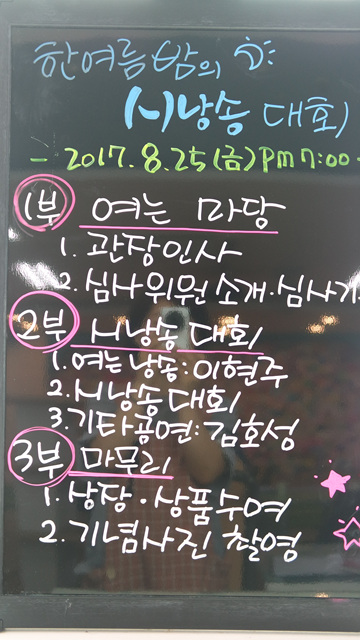 한여름밤의
시낭송 대회
- 2017. 8. 25 (금) pm 7:00 -
1부 여는 마당
1. 관장인사
2. 심사위원 소개·심사기
2부 시낭송 대회
1. 여는 낭송: 이현주
2. 시낭송 대회
3. 기타공연: 김호성
3부 마무리
1. 상장·상품수여
2. 기념사진 촬영